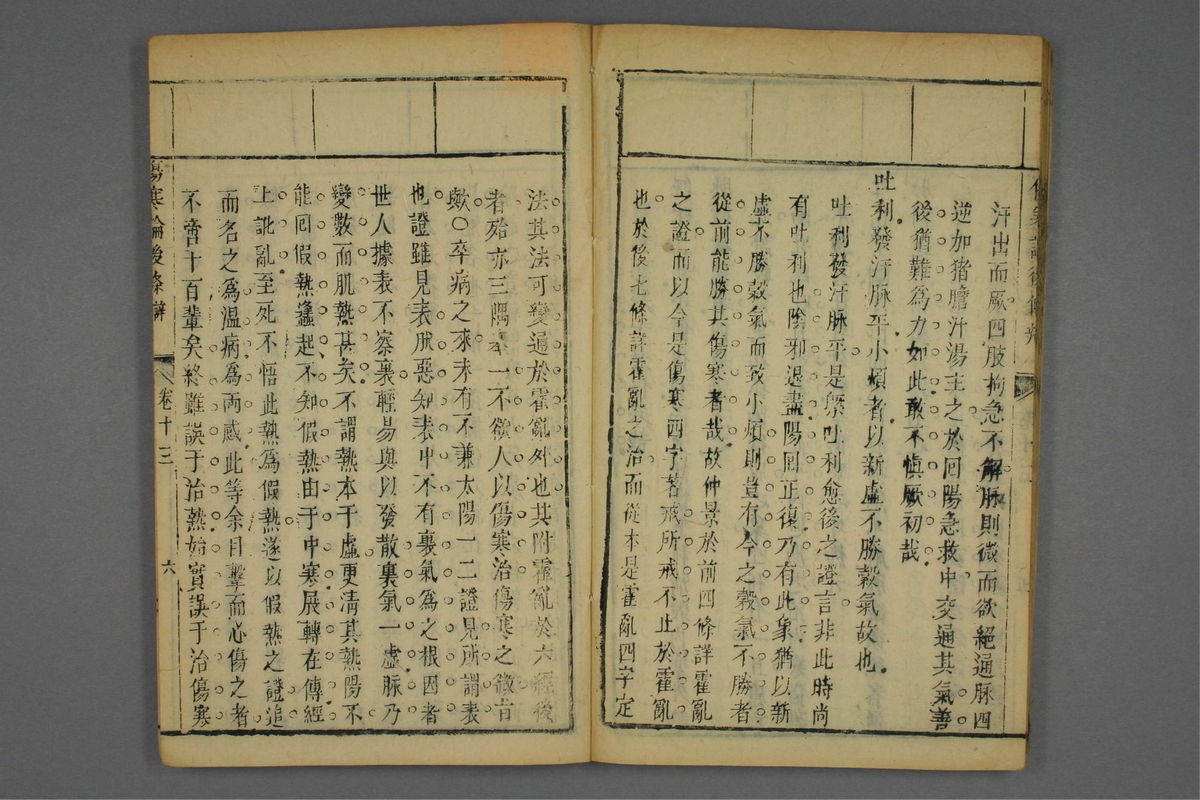 汗出而厥四肢拘急不解脉則微而欲絕通脉四
逆加猪膽汁湯主之於回陽急救中交通其氣善
後猶難為力如此敢不慎厥初哉
吐利發汗脉平小煩者以新虛不勝穀氣故也
吐利發汗脉平是傑吐利愈後之證言非此時尚
有吐利也陰邪退盡陽回正復乃有此象猶以新
虛不勝穀氣而致小煩則豈有今之穀氣不勝者
從前能勝其傷寒者哉故仲景於前四條詳霍亂
之證而以今是傷寒四字若戒所戒不止於霍亂
也於後七條詳霍亂之治而從本是霍亂四字定
法其法可變通於霍亂外也其附霍亂於六經後
者殆亦三隅一不欲人以傷寒治傷寒之微旨
歟○卒病之來未有不兼太陽一二證見所謂表
也證雖見表脉惡知表中不有裏氣為之根因者
世人據表不察裏輕易與以發散裏氣一虛脉乃
變數而肌熱甚矣不謂熱本于虛更清其熱陽不
能回假熱蠭起不知假熱由于中寒展轉在傳經
上訛亂至死不悟此熱為假熱遂以假熱之證追
而名之為溫病為兩感此等余目擊而心傷之者
不啻十百輩矣終難誤于治熱始實誤于治傷寒
傷寒論後條辯
卷十三
六